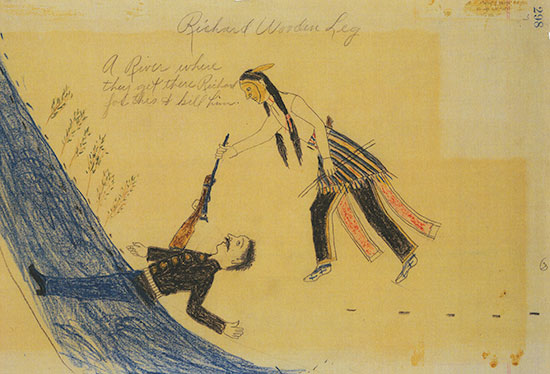 Richard Wooden Leg
A River where
they get there Richard
got this & kill him.
298